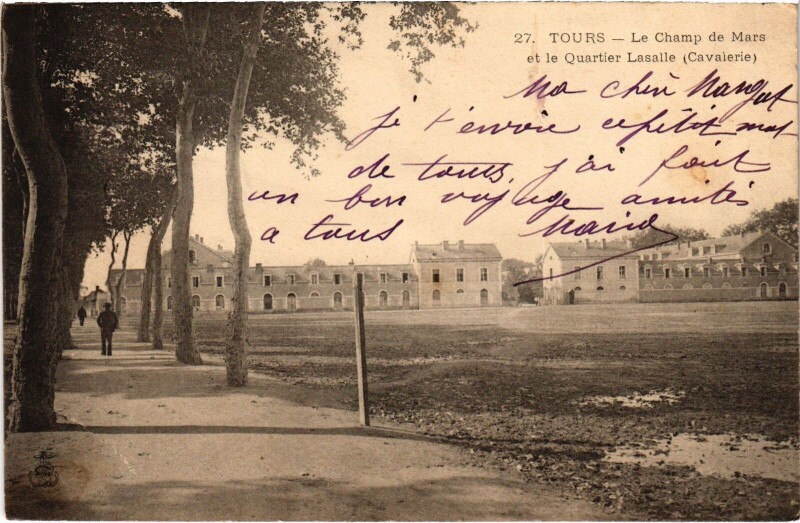 27. TOURS — Le Champ de Mars
et le Quartier Lasalle (Cavalerie)
Ma chér Margot
je t'envoie ce petit mot
de tours, j'ai fait
un bon voyage amitiés
a tous Marie